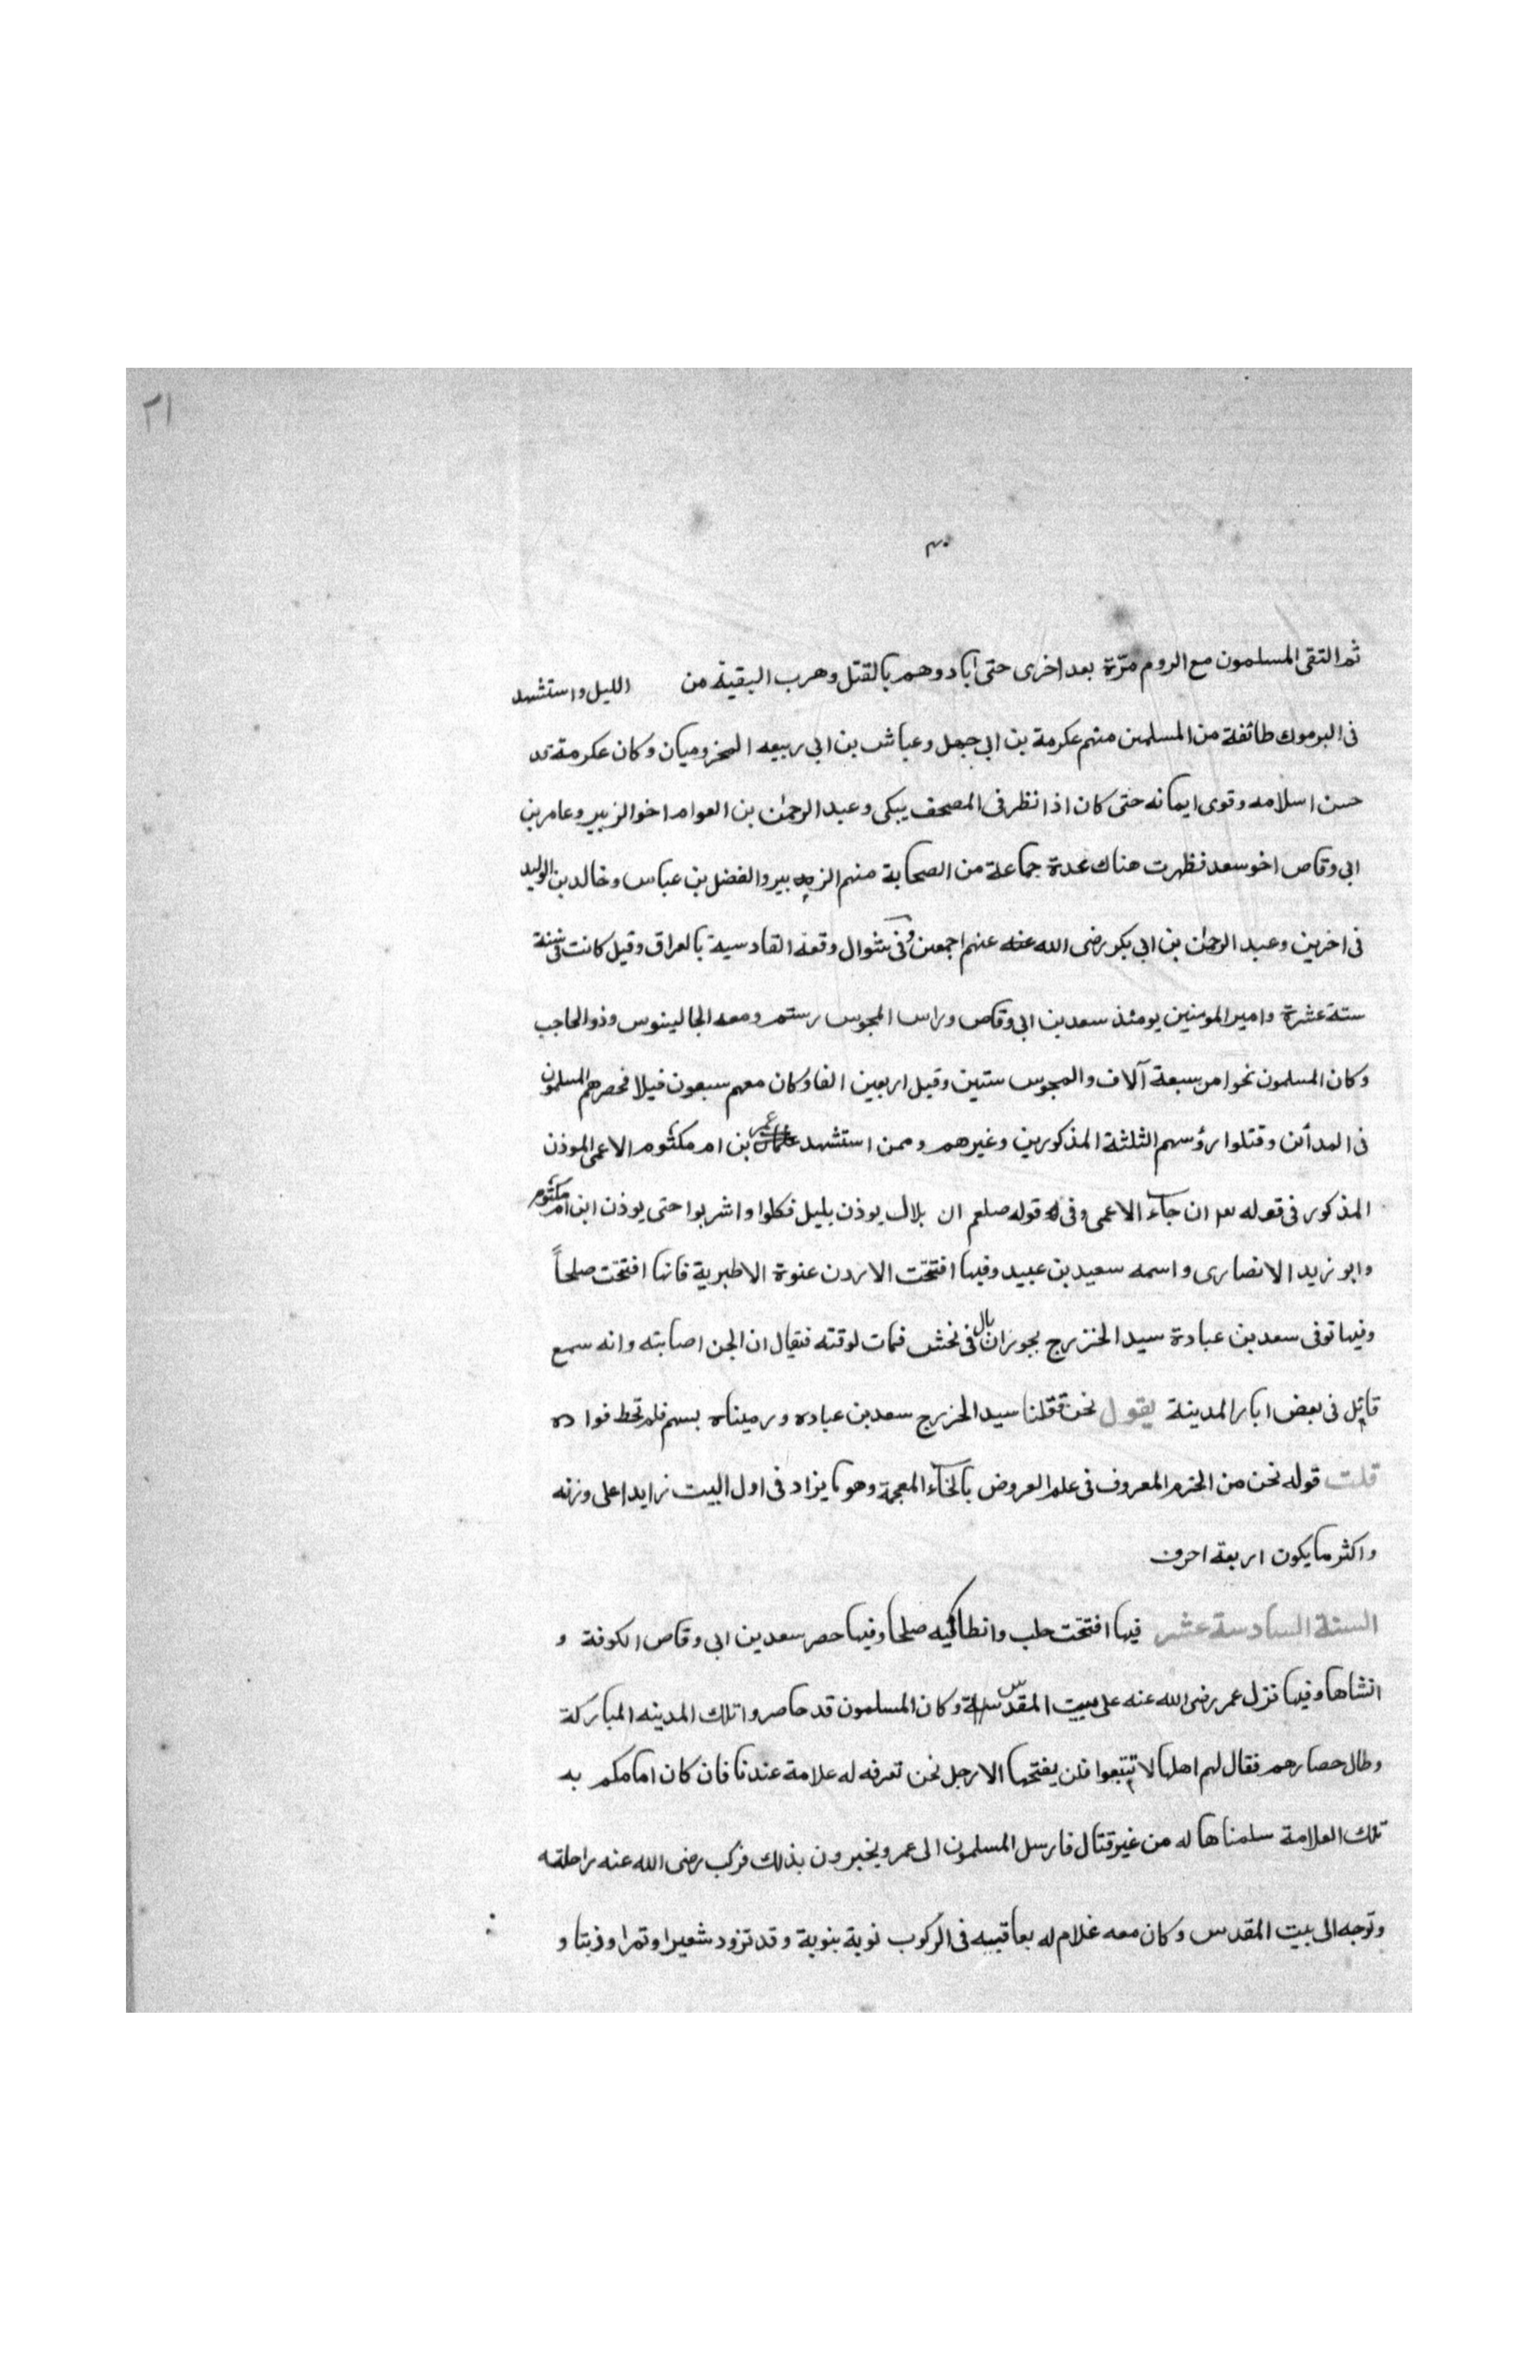 ٢١
٣٠
ثم التقى المسلمون مع الروم مرّة بعد اخرى حتى ابادوهم بالقتل وهرب البقية من الليل واستشهد
فى اليرموك طائفة من المسلمين منهم عكرمة بن ابى جهل وعياش بن ابى ربيعه المخزوميان وكان عكرمة قد
حسن اسلامه وقوى ايمانه حتى كان اذا نظر فى المصحف يبكى وعبد الرحمن بن العوام اخو الزبير وعامر بن
ابى وقاص اخو سعد فظهرت هناك نجدة جماعة من الصحابة منهم الزبير والفضل بن عباس وخالد بن الوليد
فى اخرين وعبد الرحمن بن ابى بكر رضى الله عنهم اجمعين وفى شوال وقعة القادسية بالعراق وقيل كانت فى سنة
ستة عشرة وامير المومنين يومئذ سعد بن ابى وقاص وراس المجوس رستم ومعه الجالينوس وذو الحاجب
وكان المسلمون نحوا من سبعة آلاف والمجوس ستين وقيل اربعين الفا وكان معهم سبعون فيلا فحصرهم المسلمون
فى المدائن وقتلوا رؤسهم الثلثة المذكورين وغيرهم وممن استشهد عمر بن ام مكتوم الاعمى الموذن
المذكور فى قوله ان جآء الاعمى وفى قوله صلعم ان بلال يوذن بليل فكلوا واشربوا حتى يوذن ابن ام مكتوم
وابو زيد الانصارى واسمه سعيد بن عبيد وفيها افتتحت الاردن عنوة الا طبرية فانها افتتحت صلحاً
وفيها توفى سعد بن عبادة سيد الخزرج بجوران بال فى نحش فمات لوقته فيقال ان الجن اصابته وانه سمع
قائل فى بعض ابار المدينة يقول نحن قتلنا سيد الخزرج سعد بن عباده ورميناه بسهم فلم تخط فواده
قلت قوله نحن من الخزم المعروف فى علم العروض بالخآء المعجمة وهو ما يزاد فى اول البيت زايدا على وزنه
واكثر ما يكون اربعة احرف
السنة السادسة عشر فيها افتتحت حلب وانطاكيه صلحا وفيها حصر سعد بن ابى وقاص الكوفة و
انشاها وفيها نزل عمر رضى الله عنه على بيت المقدس وكان المسلمون قد حاصروا تلك المدينه المباركة
وطال حصارهم فقال لهم اهلها لا تتعبوا فلن يفتحها الا رجل نحن نعرفه له علامة عندنا فان كان امامكم به
تلك العلامة سلمناها له من غير قتال فارسل المسلمون الى عمر ويخبرون بذلك فركب رضى الله عنه راحلته
وتوجه الى بيت المقدس وكان معه غلام له يعاقبه فى الركوب نوبة بنوبة وقد تزود شعيرا وتمرا وزيتا و